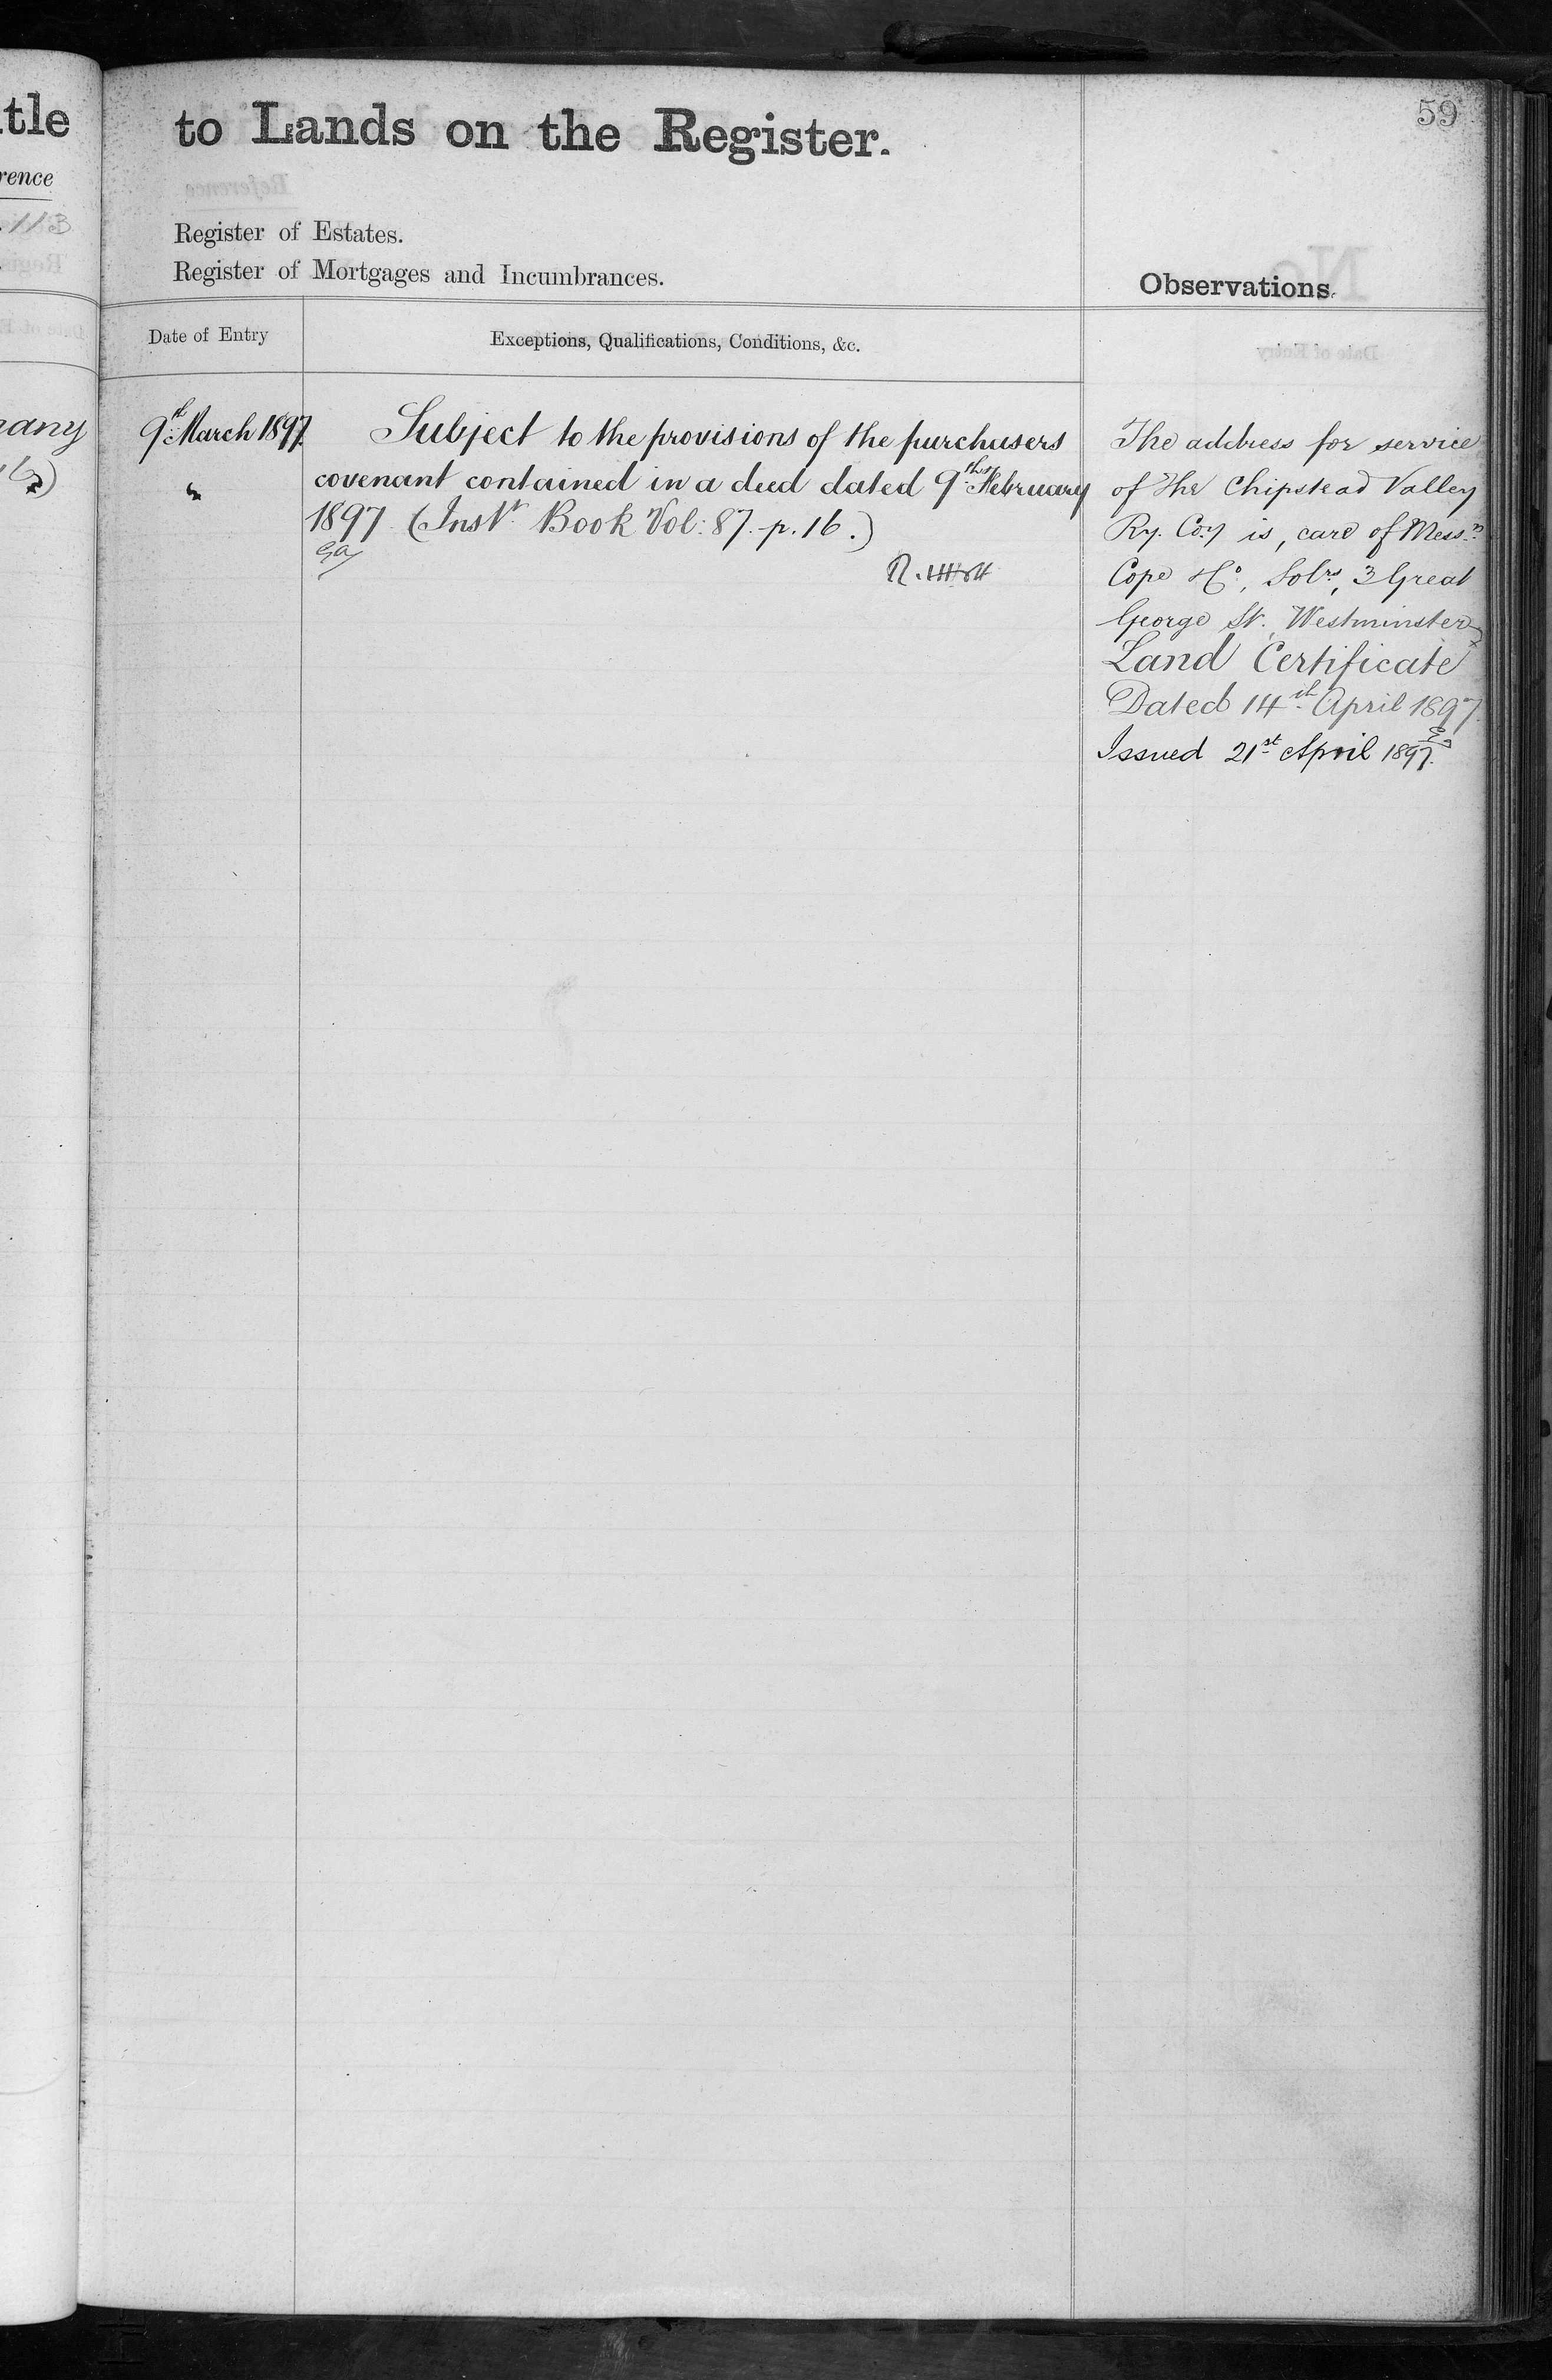 tle
rence
11B
pany
16)
to Lands on the Register.
59
Register of Estates.
Register of Mortgages and Incumbrances.
Observations.
Date of Entry
Exceptions, Qualifications, Conditions, &c.
9th March 1897.
Subject to the provisions of the purchasers
covenant contained in a deed dated 9th February
1897 (Inst. Book Vol: 87. p. 16.)
The address for service
of The Chipstead Valley
Ry. Coy is, care of Messrs
Cope & Co, Solrs, 3 Great
George St. Westminster
Land Certificate
Dated 14th April 1897.
Issued 21st April 1897.